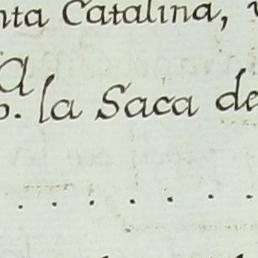 nta Catalina,
a
o. la Saca de
. . . . . . .